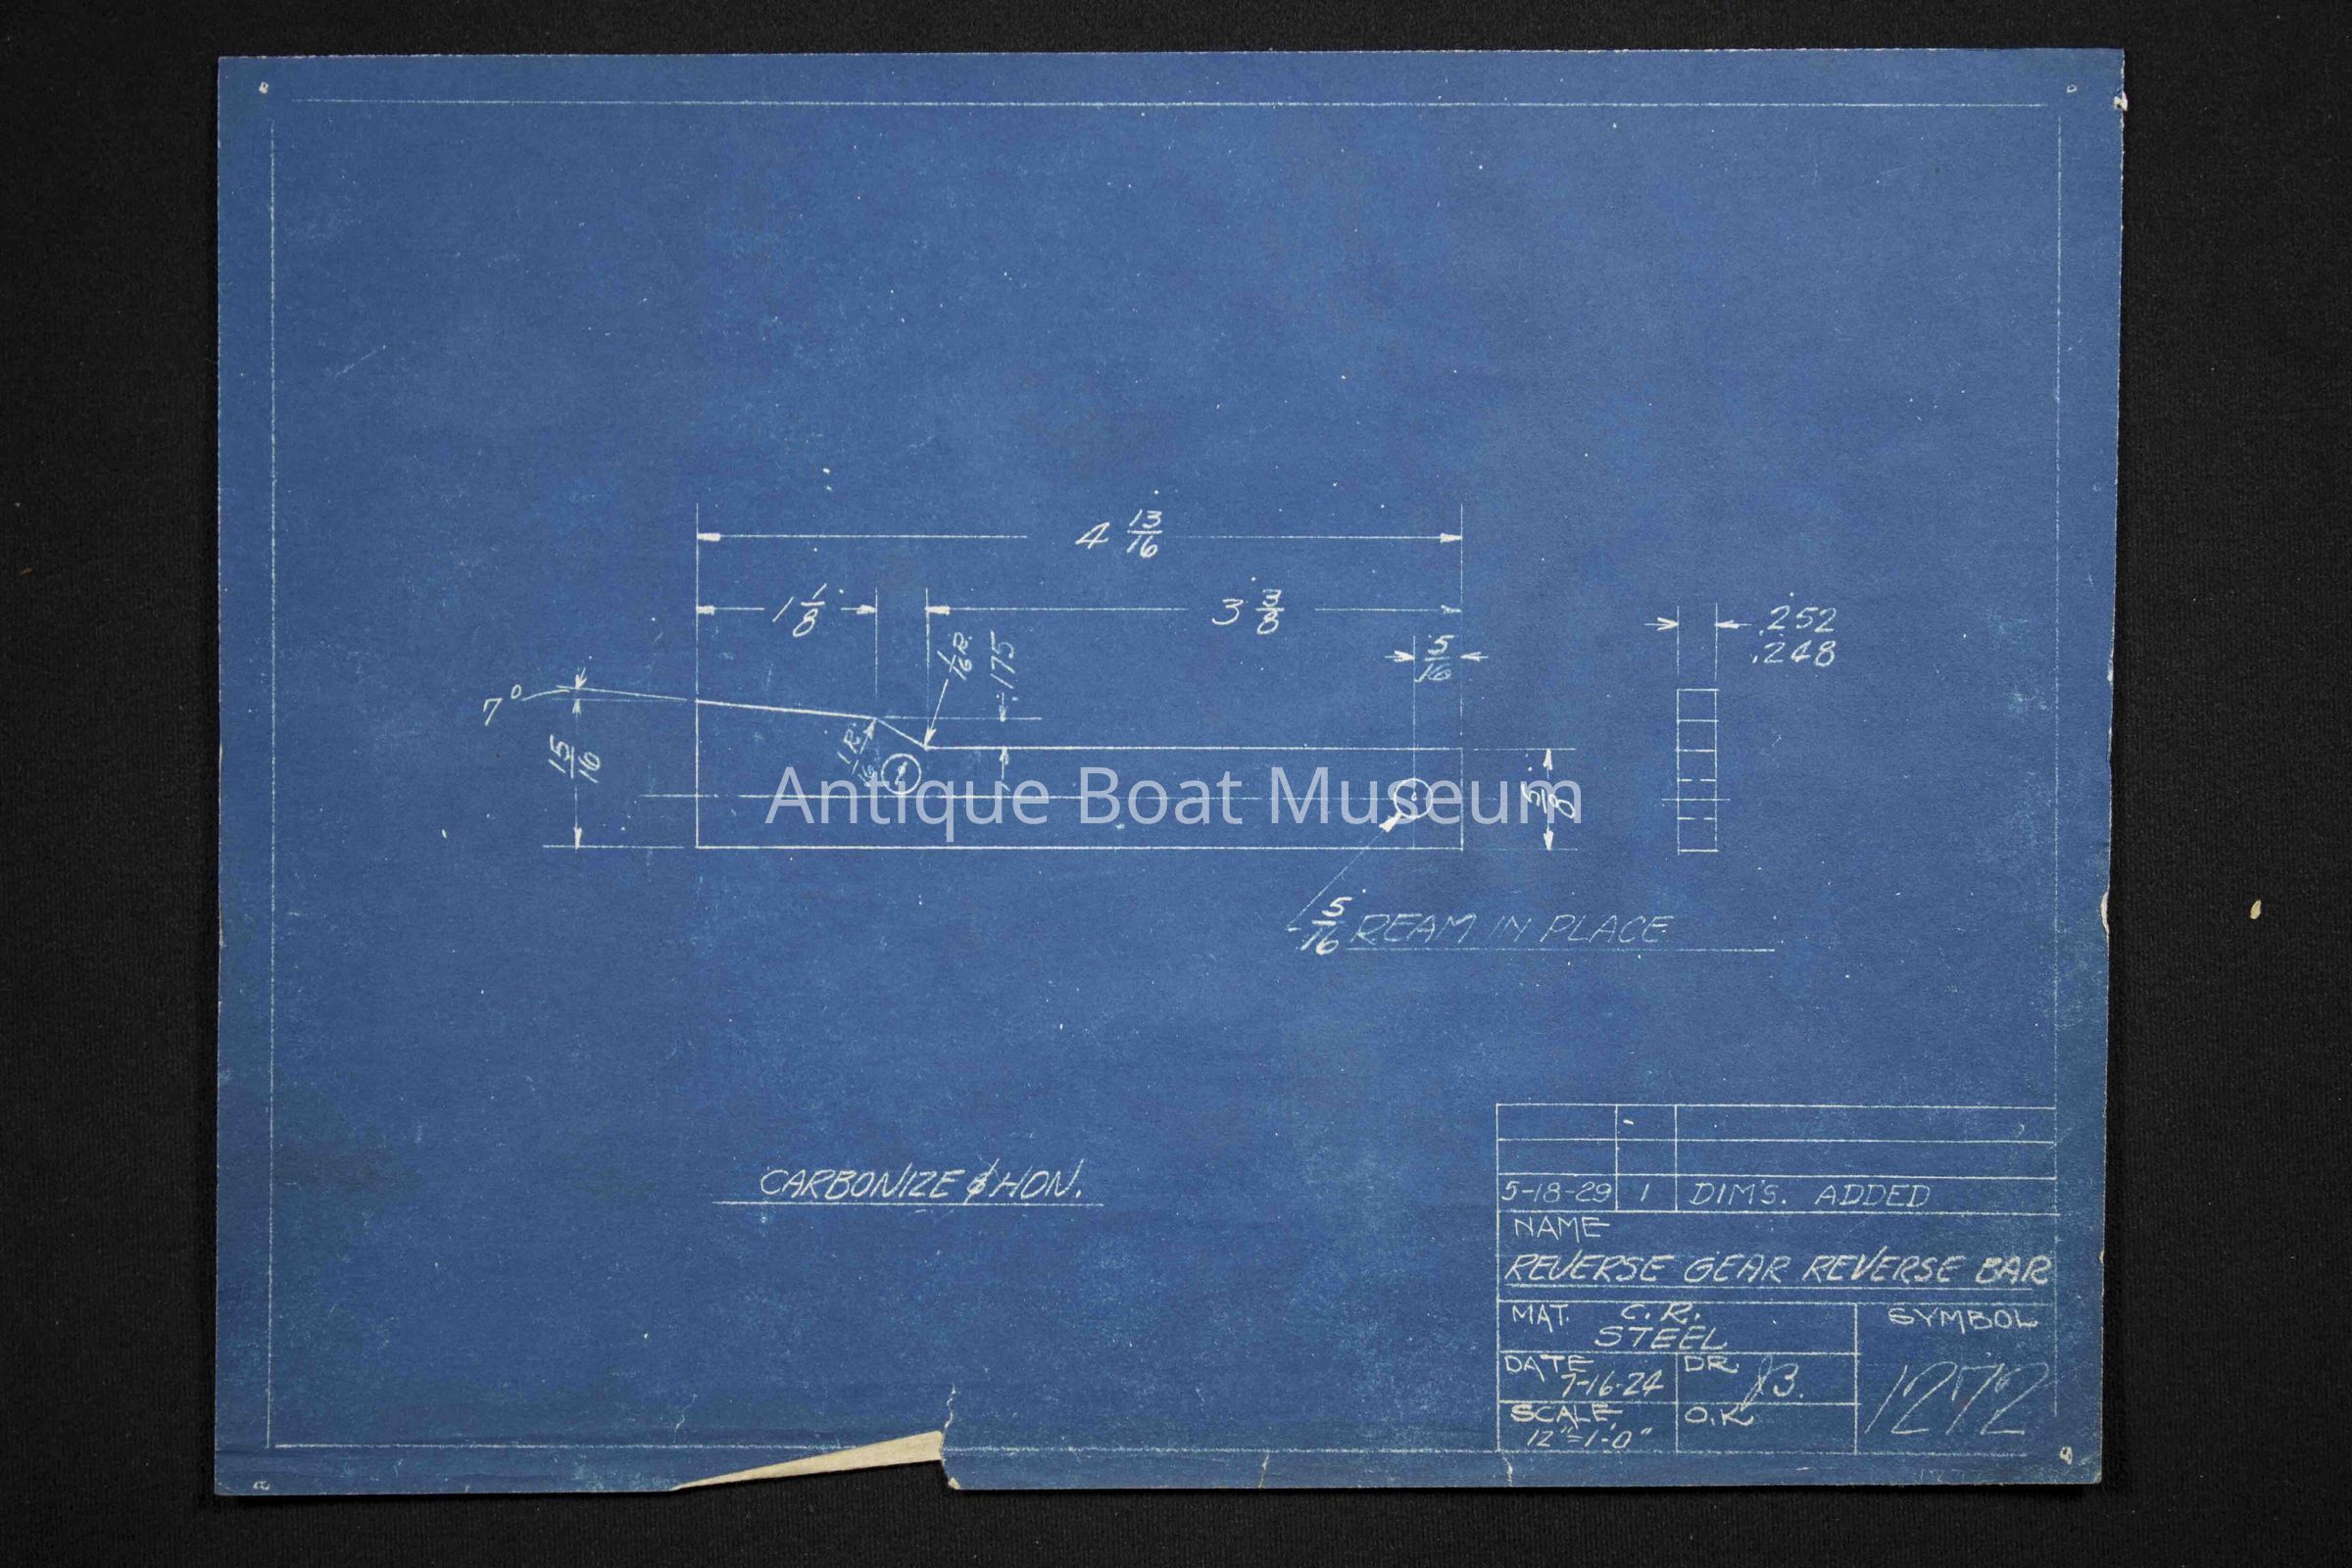 4 13/16
1 1/8
3 3/8
1/16 R.
.175
5/16
.252
.248
7°
15/16
1/16 R
1
5/8
Antique Boat Museum
5/16 REAM IN PLACE
CARBONIZE & HDN.
5-18-29 1 DIM'S. ADDED
NAME
REVERSE GEAR REVERSE BAR
MAT. C.R.
STEEL
SYMBOL
DATE 7-16-24
DR. B.
1272
SCALE
12"=1'-0"
O.K.